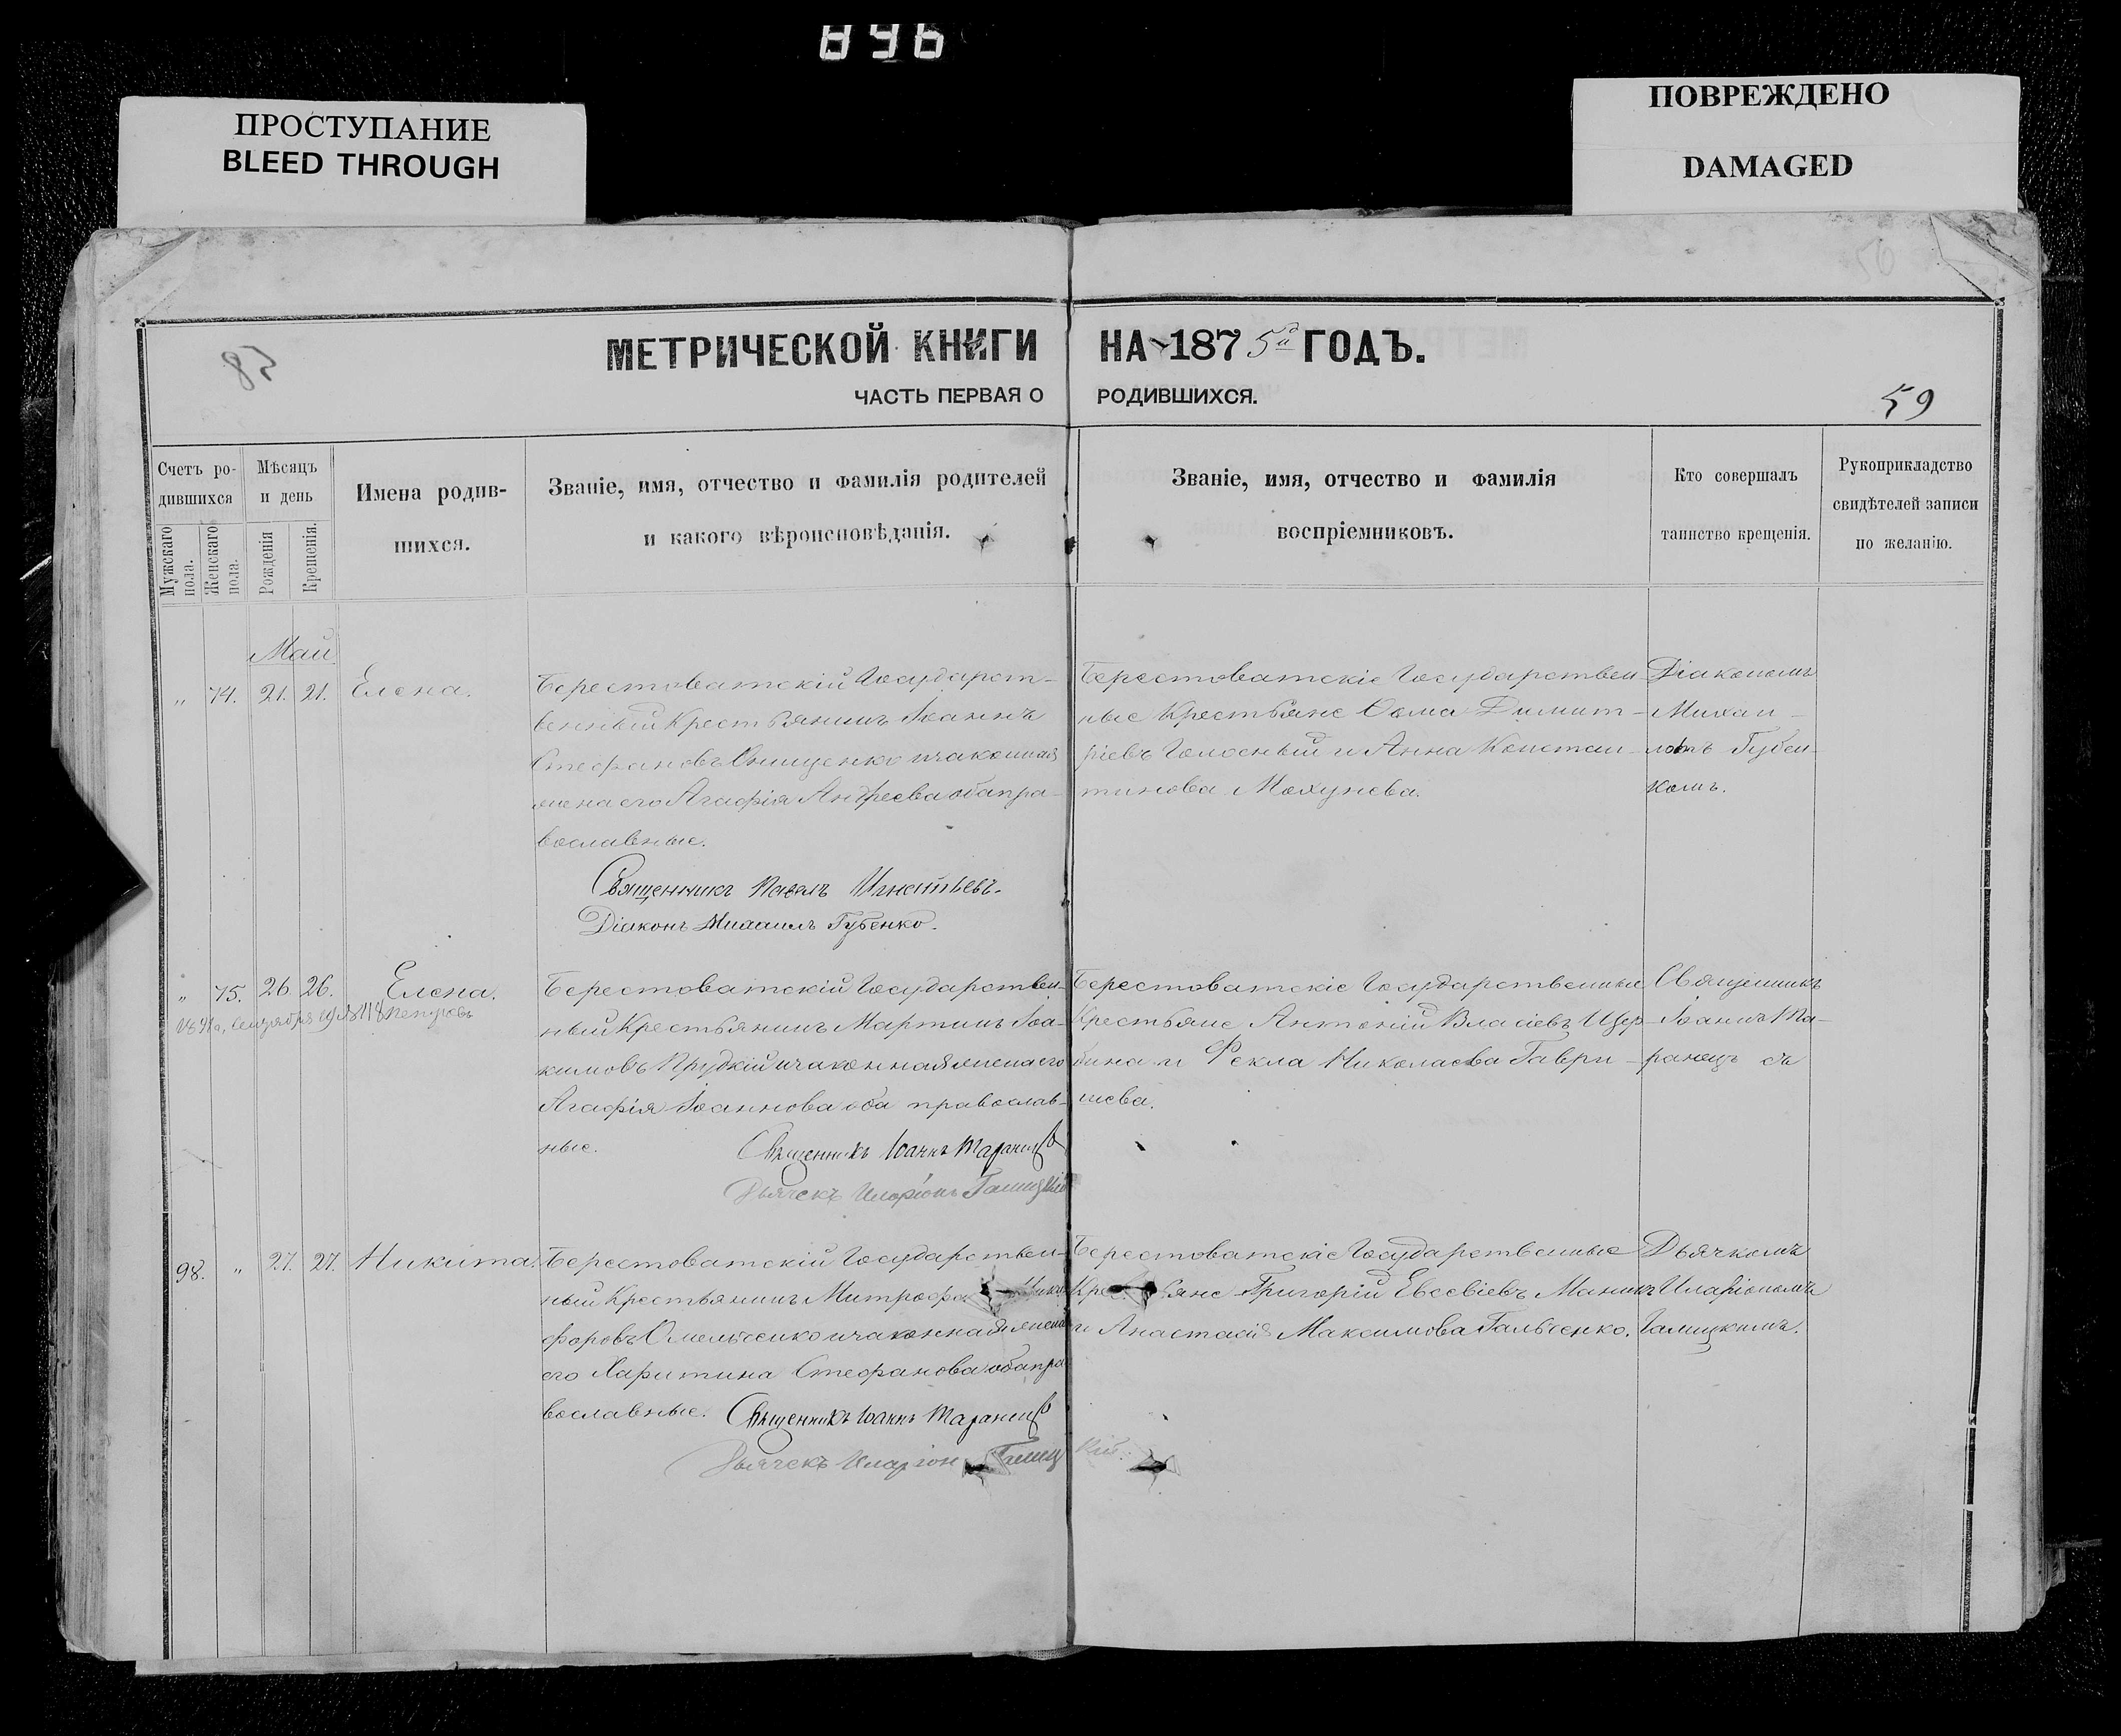 896
ПРОСТУПАНИЕ
BLEED THROUGH
ПОВРЕЖДЕНО
DAMAGED
58
МЕТРИЧЕСКОЙ КНИГИ НА 1875й ГОДЪ.
ЧАСТЬ ПЕРВАЯ О РОДИВШИХСЯ.
59
Счетъ ро-
дившихся
Мужскаго пола.
Женскаго пола.
Мѣсяцъ
и день
Рожденія
Крещенія.
Имена родив-
шихся.
Званіе, имя, отчество и фамилія родителей
и какого вѣроисповѣданія.
Званіе, имя, отчество и фамилія
воспріемниковъ.
Кто совершалъ
таинство крещенія.
Рукоприкладство
свидѣтелей записи
по желанію.
Май
„ 74. 21. 21. Елена.
Берестоватскій Государст-
венный Крестьянинъ Іоаннъ
Стефановъ Онищенко и законная
жена его Агафія Андреева оба пра-
вославные.
Священникъ Павелъ Игнатьевъ.
Діаконъ Михаилъ Губенко.
Берестоватскіе Государствен-
ные Крестьяне Ѳома Димит-
ріевъ Голосный и Анна Констан-
тинова
Діакономъ
Михаи-
ломъ Губен-
комъ.
„ 75. 26. 26. Елена.
Сентября
Берестоватскій Государствен-
ный Крестьянинъ Мартинъ Іоа-
кимовъ Прудкій и законная жена его
Агафія Іоаннова оба православ-
ные.
Священникъ Іоаннъ
Дьячекъ Иларіонъ Галицкій
Берестоватскіе Государственные
Крестьяне Антоній Власіевъ Щер-
бина и Ѳекла Николаева Гаври-
шева.
Священникъ
Іоаннъ Та-
98. „ 27. 27. Никита.
Берестоватскій Государствен-
ный Крестьянинъ Митрофа Ники
форовъ Омельченко и законная жена
его Харитина Стефанова оба пра
вославные.
Священникъ Іоаннъ
Дьячекъ Иларіон Галицкій.
Берестоватскіе Государственные
Кре яне Григорій Евсевіевъ
и Анастасія Максимова Гальченко.
Дьячкомъ
Иларіономъ
Галицкимъ.